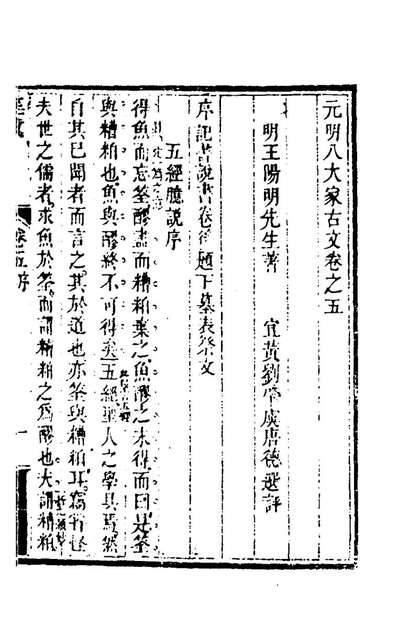 元明八大家古文卷之五
明王陽明先生著　宜黃劉肇虞唐德選評
序記書說書卷後題下墓表祭文
五經臆說序
得魚而忘筌醪盡而糟粕棄之魚醪之未得而曰是筌
與糟粕也魚與醪終不可得矣五經聖人之學具焉然
自其已聞者而言之其於道也亦筌與糟粕耳竊嘗怪
夫世之儒者求魚於筌而謂糟粕之為醪也夫謂糟粕
卷五序
一